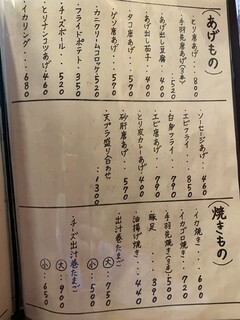 (あげもの)
・とり唐あげ・800
・手羽先唐あげ(3本)・520
・あげ出し豆腐・400
・あげ出し茄子・400
・タコ唐あげ・570
・ゲソ唐あげ・570
・カニクリームコロッケ・520
・フライドポテト・350
・チーズボール・520
・とりナンコツあげ・460
・イカリング・680
・ソーセージあげ・460
・エビフライ・850
・白身フライ・790
・エビ唐あげ・790
・とり皮カレーあげ・400
・砂肝唐あげ・570
・天プラ盛り合わせ・1300
(焼きもの)
・イカ焼き・600
・イカゴロ焼き・720
・手羽先焼き(3本)・500
・豚足・390
・油揚げ焼き・440
・出汁巻たまご 大・750
小・500
・チーズ出汁巻たまご 大・900
小・650